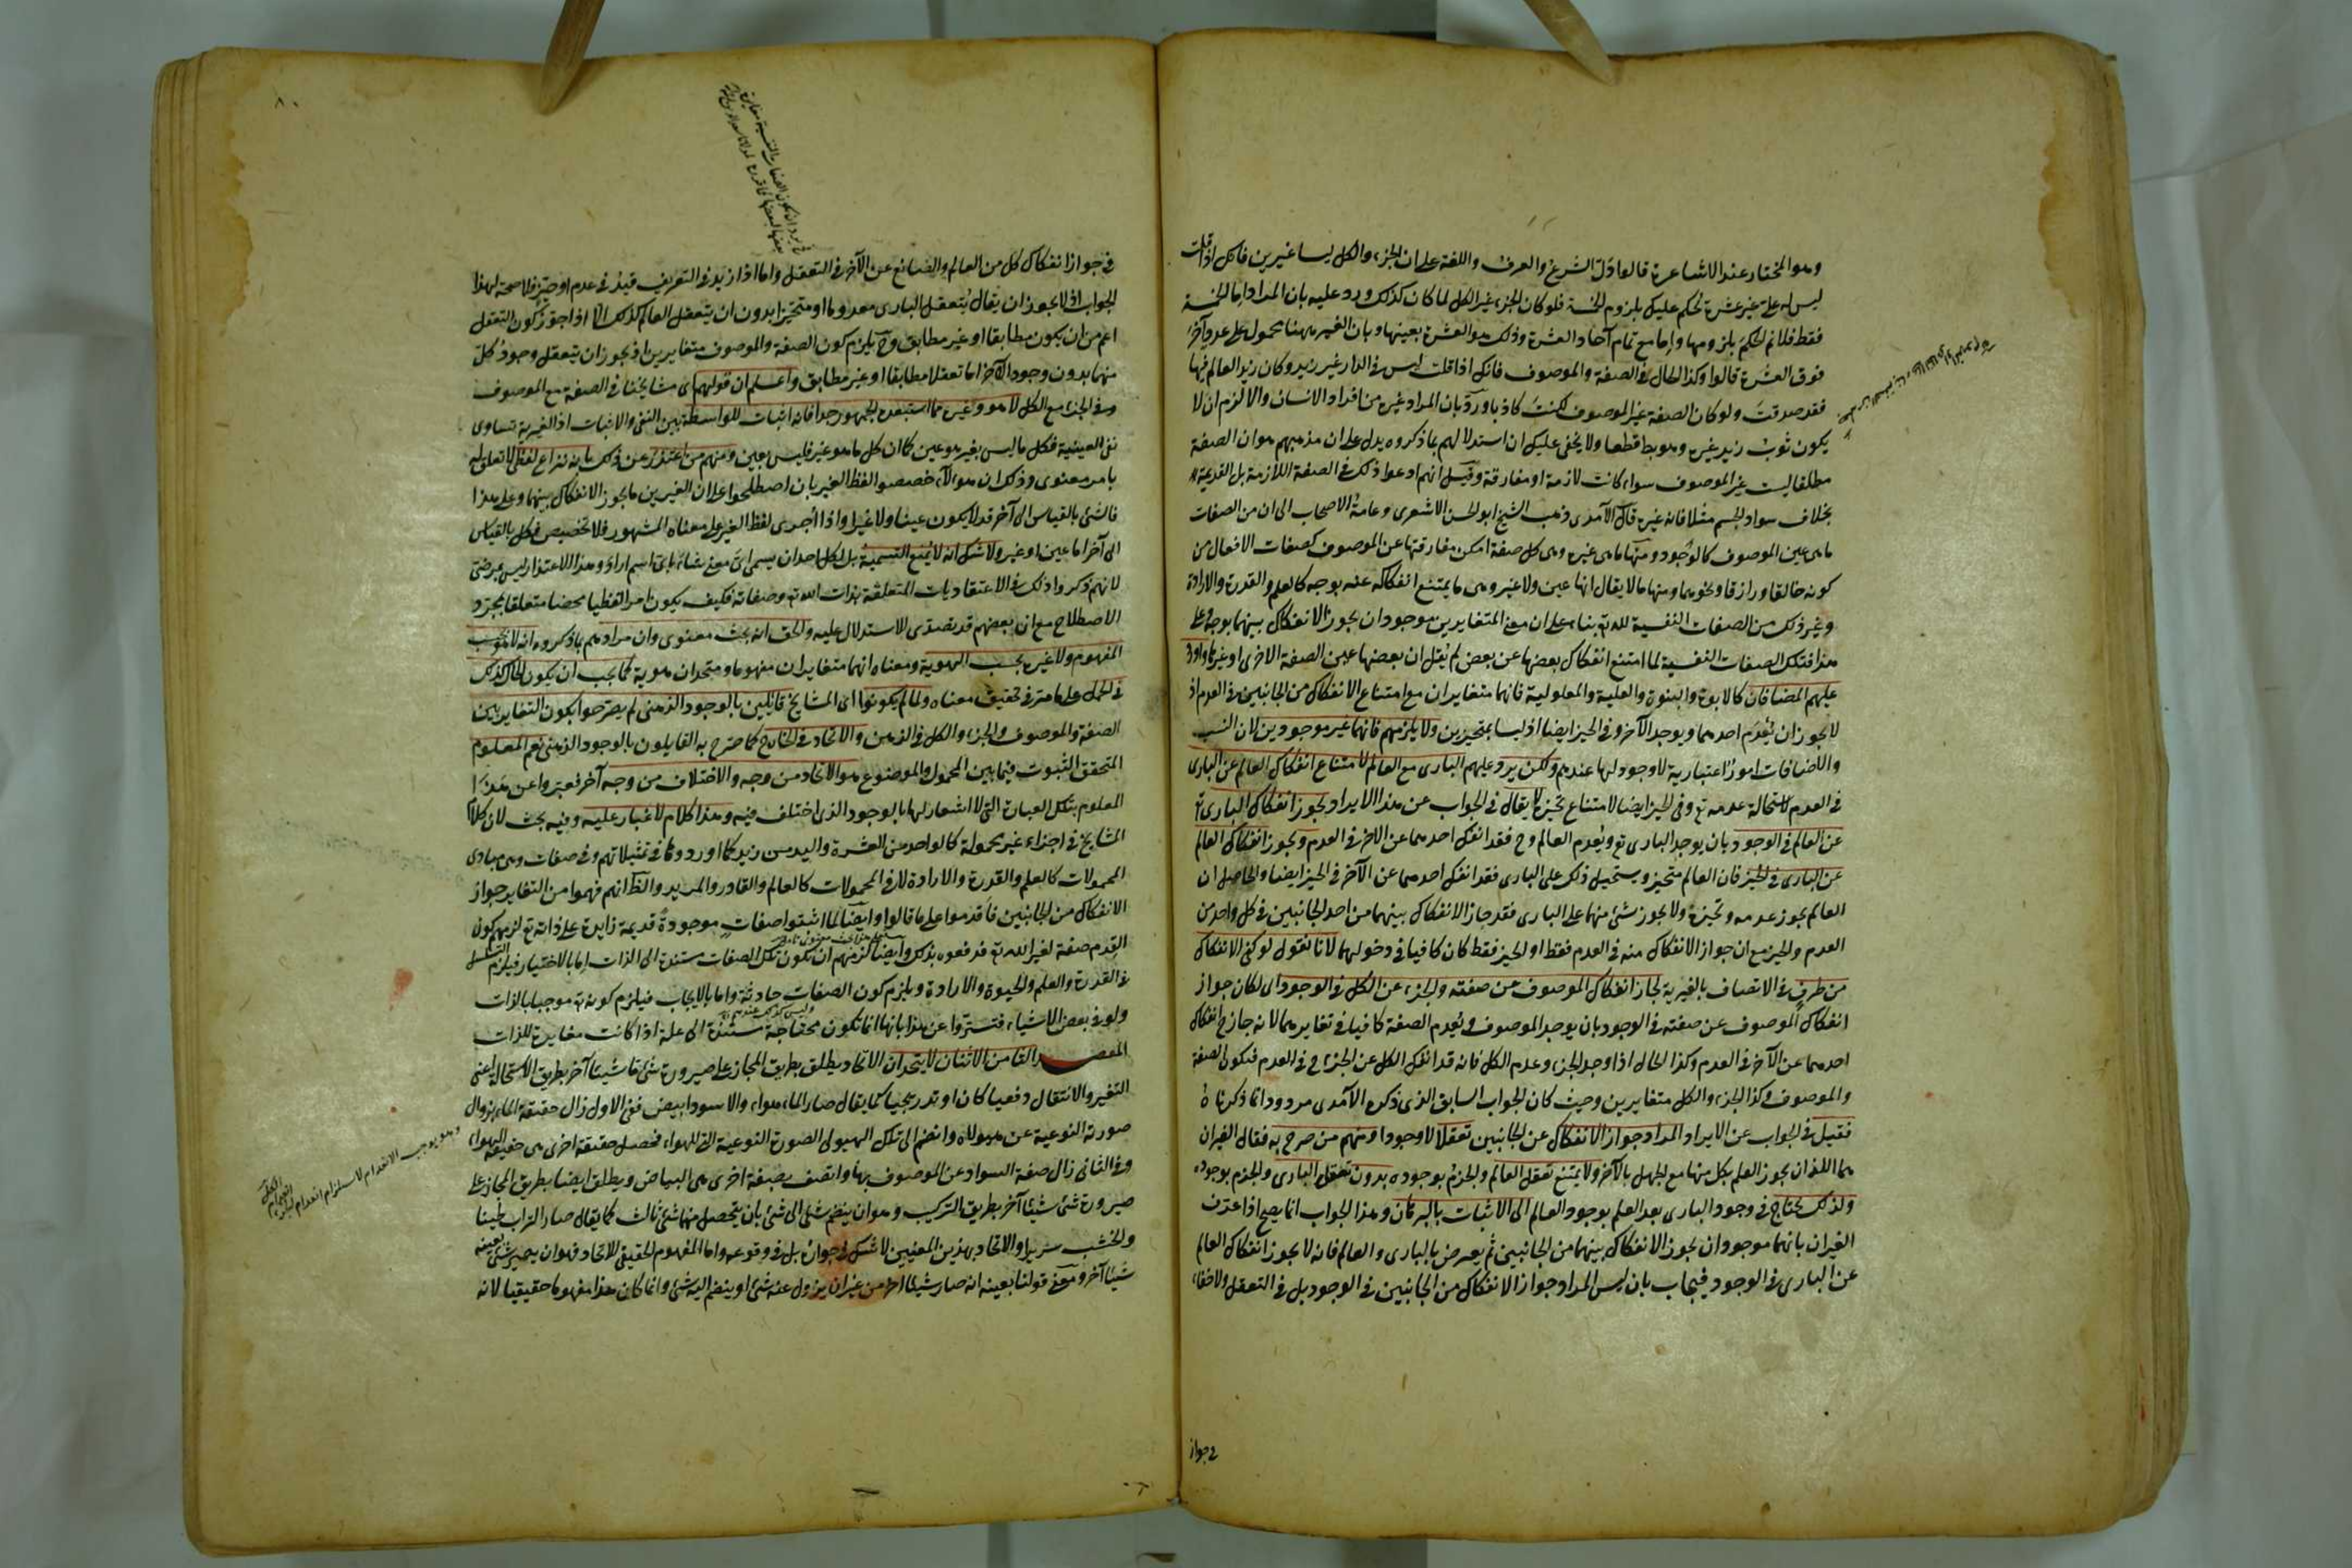 وهو المختار عند الاشاعرة قالوا دلّ الشرع والعرف واللغة على ان الجزء والكل ليسا غيرين فانك اذا قلت
ليس له على غير عشرة يحكم عليك بلزوم الخمسة فلو كان الجزء غير الكل لما كان كذلك ورد عليه بان المراد اما الخمسة
فقط فلانم الحكم بلزومها واما مع تمام آحاد العشرة وذلك هو العشرة بعينها وبان الغير ههنا محمول على عدد آخر
فوق العشرة قالوا وكذا الحال في الصفة والموصوف فانك اذا قلت ليس في الدار غير زيد وكان زيد العالم فيها
فقد صدقت ولو كان الصفة غير الموصوف لكنت كاذبا ورد بان المراد غيره من افراد الانسان والا لزم ان لا
يكون ثوب زيد غيره وهو بط قطعا ولا يخفى عليك ان استدلالهم بما ذكروه يدل على ان مذهبهم هو ان الصفة
مطلقا ليست غير الموصوف سواء كانت لازمة او مفارقة وقيل انهم ادعوا ذلك في الصفة اللازمة بل القديمة
بخلاف سواد الجسم مثلا فانه غيره قال الآمدي ذهب الشيخ ابو الحسن الاشعري وعامة الاصحاب الى ان من الصفات
ما هي عين الموصوف كالوجود ومنها ما هي غيره وهي كل صفة امكن مفارقتها عن الموصوف كصفات الافعال من
كونه خالقا ورازقا ونحوهما ومنها ما لا يقال انها عين ولا غير وهي ما يمتنع انفكاكه عنه بوجه كالعلم والقدرة والارادة
وغير ذلك من الصفات النفسية لله تع بناء على ان معنى المتغايرين موجودان يجوز الانفكاك بينهما بوجه وعلى
هذا فتلك الصفات النفسية لما امتنع انفكاك بعضها عن بعض لم يقل ان بعضها عين الصفة الاخرى او غيرها واورد
عليهم المضافان كالابوة والبنوة والعلية والمعلولية فانهما متغايران مع امتناع الانفكاك من الجانبين في العدم اذ
لا يجوز ان يعدم احدهما ويوجد الآخر وفي الحيز ايضا اذ ليسا بمتحيزين ولا يلزمهم فانهما غير موجودين لان النسب
والاضافات امور اعتبارية لا وجود لها عندهم ولكن يرد عليهم الباري مع العالم لامتناع انفكاك العالم عن الباري
في العدم لاستحالة عدمه تع وفي الحيز ايضا لامتناع تحيزه لا يقال في الجواب عن هذا الايراد يجوز انفكاك الباري تع
عن العالم في الوجود بان يوجد الباري تع ويعدم العالم وح فقد انفك احدهما عن الآخر في العدم ويجوز انفكاك العالم
عن الباري في الحيز فان العالم متحيز ويستحيل ذلك على الباري فقد انفك احدهما عن الآخر في الحيز ايضا والحاصل ان
العالم يجوز عدمه وتحيزه ولا يجوز شئ منهما على الباري فقد جاز الانفكاك بينهما من احد الجانبين في كل واحد من
العدم والحيز مع ان جواز الانفكاك منه في العدم فقط او الحيز فقط كان كافيا في دخولهما لانا نقول لو كفى الانفكاك
من طرف في الاتصاف بالغيرية لجاز انفكاك الموصوف عن صفته والجزء عن الكل في الوجود اي لكان جواز
انفكاك الموصوف عن صفته في الوجود بان يوجد الموصوف ويعدم الصفة كافيا في تغايرهما لانه جاز ح انفكاك
احدهما عن الآخر في العدم وكذا الحال اذا وجد الجزء وعدم الكل فانه قد انفك الكل عن الجزء ح في العدم فيكون الصفة
والموصوف وكذا الجزء والكل متغايرين وحيث كان الجواب السابق الذي ذكره الآمدي مردودا بما ذكرناه
فقيل في الجواب عن الايراد المراد جواز الانفكاك عن الجانبين تعقلا لا وجودا ومنهم من صرح به فقال الغيران
هما اللذان يجوز العلم بكل منهما مع الجهل بالآخر ولا يمتنع تعقل العالم والجزم بوجوده بدون تعقل الباري والجزم بوجوده
ولذلك يحتاج في وجود الباري بعد العلم بوجود العالم الى الاثبات بالبرهان وهذا الجواب انما يصح اذا عرف
الغيران بانهما موجودان يجوز الانفكاك بينهما من الجانبين ثم يعرض بالباري والعالم فانه لا يجوز انفكاك العالم
عن الباري في الوجود فيجاب بان ليس المراد جواز الانفكاك من الجانبين في الوجود بل في التعقل ولا خفاء
في جواز
٨٠
في جواز انفكاك كل من العالم والصانع عن الآخر في التعقل واما اذا زيد في التعريف قيد في عدم او حيز فلا صحة لهذا
الجواب اذ لا يجوز ان يقال يتعقل الباري معدوما او متحيزا بدون ان يتعقل العالم كذلك الا اذا جوز كون التعقل
اعم من ان يكون مطابقا او غير مطابق وح يلزم كون الصفة والموصوف متغايرين اذ يجوز ان يتعقل وجود كل
منهما بدون وجود الآخر اما تعقلا مطابقا او غير مطابق واعلم ان قولهم اي مشايخنا في الصفة مع الموصوف
وفي الجزء مع الكل لا هو ولا غيره مما استبعده الجمهور جدا فانه اثبات للواسطة بين النفي والاثبات اذ الغيرية تساوي
نفي العينية فكل ما ليس بعين فهو غير كما ان كل ما هو غير فليس بعين ومنهم من اعتذر عن ذلك بانه نزاع لفظي لا تعلق له
بامر معنوي وذلك ان هؤلاء خصصوا لفظ الغير بان اصطلحوا على ان الغيرين ما يجوز الانفكاك بينهما وعلى هذا
فالشئ بالقياس الى آخر قد لا يكون عينا ولا غيرا واذا اجري لفظ الغير على معناه المشهور فلا تخصيص فكل بالقياس
الى آخر اما عين او غير ولا شك انه لا يمنع التسمية بل لكل احد ان يسمي اي معنى شاء باي اسم اراد وهذا الاعتذار ليس بمرضي
لانهم ذكروا ذلك في الاعتقاديات المتعلقة بذات الله تع وصفاته فكيف يكون امرا لفظيا محضا متعلقا بمجرد
الاصطلاح مع ان بعضهم قد تصدى للاستدلال عليه والحق انه بحث معنوي وان مرادهم بما ذكروه انه لا هو بحسب
المفهوم ولا غيره بحسب الهوية ومعناه انهما متغايران مفهوما ومتحدان هوية كما يجب ان يكون الحال كذلك
في الحمل على ما مر في تحقيق معناه ولما لم يكونوا اي المشايخ قائلين بالوجود الذهني لم يصرحوا بكون التغاير بين
الصفة والموصوف والجزء والكل في الذهن والاتحاد في الخارج كما صرح به القايلون بالوجود الذهني نعم المعلوم
المتحقق الثبوت فيما بين المحمول والموضوع هو الاتحاد من وجه والاختلاف من وجه آخر فعبروا عن هذا
المعلوم بتلك العبارة التي لا اشعار لها بالوجود الذي اختلف فيه وهذا كلام لا غبار عليه وفيه بحث لان كلام
المشايخ في اجزاء غير محمولة كالواحد من العشرة واليد من زيد كما اوردوها في تمثيلاتهم وفي صفات وهي مبادي
المحمولات كالعلم والقدرة والارادة لا في المحمولات كالعالم والقادر والمريد والظ انهم فهموا من التغاير جواز
الانفكاك من الجانبين فاقدموا على ما قالوا وايضا لما اثبتوا صفات موجودة قديمة زايدة على ذاته تع لزمهم كون
القدم صفة لغير الله تع فدفعوه بذلك وايضا لزمهم ان تكون تلك الصفات مستندة الى الذات اما بالاختيار فيلزم التسلسل
في القدرة والعلم والحيوة والارادة ويلزم كون الصفات حادثة واما بالايجاب فيلزم كونه تع موجبا بالذات
ولو في بعض الاشياء فتستروا عن هذا بانها انما تكون محتاجة مستندة الى علة اذا كانت مغايرة للذات
المقصد الثامن الاثنان لا يتحدان الاتحاد يطلق بطريق المجاز على صيرورة شئ ما شيئا آخر بطريق الاستحالة اعني
التغير والانتقال دفعيا كان او تدريجيا كما يقال صار الماء هواء والاسود ابيض ففي الاول زال حقيقة الماء بزوال
صورته النوعية عن هيولاه وانضم الى تلك الهيولى الصورة النوعية التي للهواء فحصل حقيقة اخرى هي حقيقة الهواء
وفي الثاني زال صفة السواد عن الموصوف بها واتصف بصفة اخرى هي البياض ويطلق ايضا بطريق المجاز على
صيرورة شئ شيئا آخر بطريق التركيب وهو ان ينضم شئ الى شئ بان يتحصل منهما شئ ثالث كما يقال صار التراب طينا
والخشب سريرا والاتحاد بهذين المعنيين لا شك في جوازه بل في وقوعه واما المفهوم الحقيقي للاتحاد فهو ان يصير شئ بعينه
شيئا آخر ومعنى قولنا بعينه انه صار شيئا آخر من غير ان يزول عنه شئ او ينضم اليه شئ وانما كان هذا مفهوما حقيقيا لانه
وهو يوجب الانعدام لاستلزام انعدام الجزء انعدام الكل